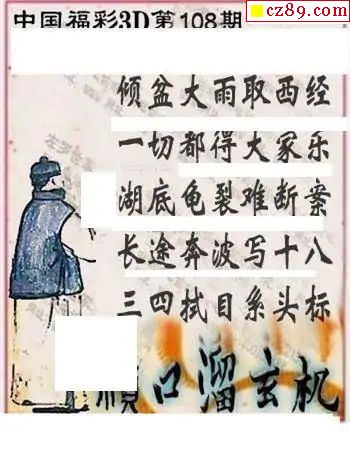 cz89.com
中国福彩3D第108期
倾盆大雨取西经
一切都得大家乐
湖底龟裂难断案
长途奔波写十八
三四拭目系头标
顺口溜玄机